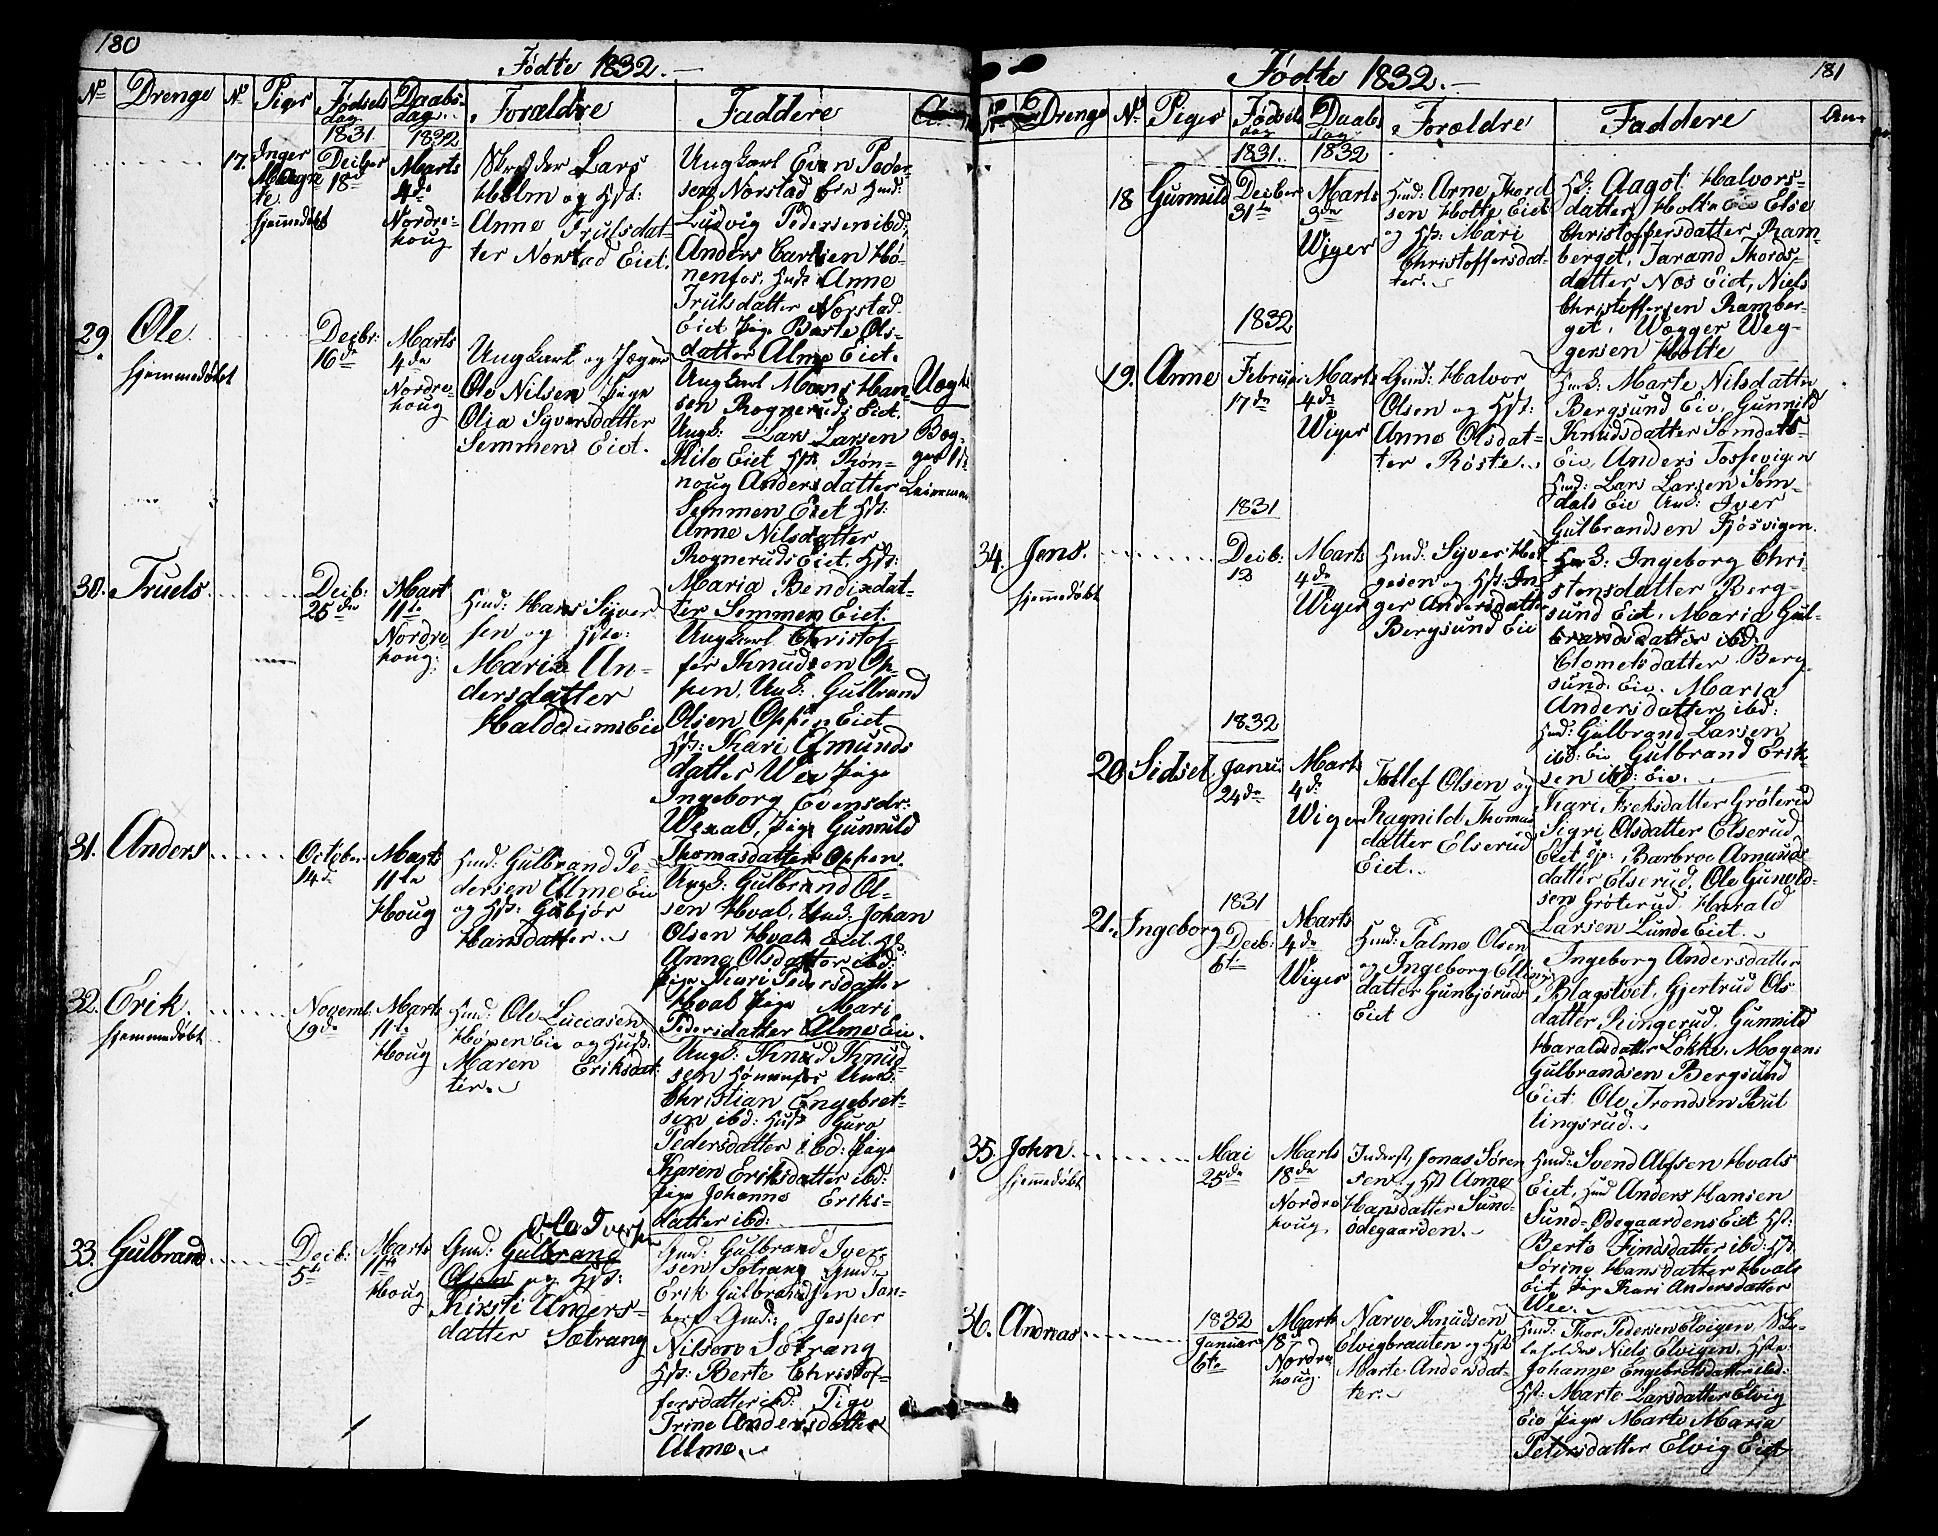 180
Fødte 1832.
No Drenge No Piger Fødsels dag Daabs- dag Forældre Faddere
1831. 1832
17. Inger Magre te hjemmedøbt
Decber 18de
Marts 4de Nordre- houg
Lars
Holm og Hst:
Anne Trulsdat-
ter Norstad Eiet.
Ungkarl Even Peder-
sen Norstad Eie Hmd:
Ludvig Pedersen ibd:
Anders Carlsen Hø-
nenfos, Hmds Anne
Trulsdatter Norstad
Eiet Pige Berte Ols-
datter Alme Eiet.
29. Ole
hjemmedøbt
Decbr: 16de
Marts 4de Nordre- houg
Ungkarl og Pige
Ole Nilsen Pige
Olia Syversdatter
Semmens Eiet.
Ungkarl Mons Han-
sen Rogneruds Eiet.
Ungk: Lars Larsen
Milo Eiet Hst: Røn-
noug Andersdatter
Semmen Eiet Hst:
Anne Nilsdatter
Rogneruds Eiet. Hst:
Maria Bendixdat-
ter Semmen Eiet.
Uægte
30. Truels
Decb: 25de
Mart 11te Nordre houg:
Hmd: Hans Syver
sen og Hste:
Maria An-
dersdatter
Haldums Eie
Ungkarl Christof-
fer Knudsen Op-
pen, Ungk: Gulbrand
Olsen Oppen Eiet
Hst: Kari Esmunds
datter We Pige
Ingeborg Evensdr:
Wexal, Pige Gunnild
Thomasdatter Oppen.
31. Anders
October 14de
Marts 11te Houg
Hmd: Gulbrand Pe-
dersen Alme Eie
og Hst: Gubjør
Hansdatter.
Ungk: Gulbrand Ol-
sen Hval, Ungk: Johan
Olsen Hvals Eiet. Hst:
Anne Olsdatter ibd:
Pige Kari Pedersdatter
Hval Pige Mari
Pedersdatter Alme Eie.
32. Erik
hjemmedøbt
Novembr 19de
Marts 11te Houg
Hmd: Ole Luccasen
Hønen Eie og Hust:
Maren Eriksdat-
ter.
Ungk: Knud Knud-
sen Hønenfos Ungk:
Christian Engebret-
sen ibd: Hust Guro
Pedersdatter ibd: Pige
Karen Eriksdatter ibd:
Pige Johanne Eriks-
datter ibd:
33. Gulbrand
Decb: 5te
Marts 11te Houg
Ole Iversen
Gmd: Gulbrand
Olsen og Hst:
Kirsti Anders-
datter Sætrang
Gmd: Gulbrand Iver-
sen Sætrang Gmd:
Erik Gulbrandsen Tan-
berg Gmd: Jesper
Nilsen Sætrang
Hst: Berte Christof-
fersdatter ibd: Pige
Trine Andersdatter
Alme.
181
Fødte 1832.
No Drenge No Piger Fødsels dag Daabs dag Forældre Faddere Anm
1831. 1832
18 Gunnild
Decber 31te
Marts 3de Wiger
Hmd: Arne Thord
sen Holte Eiet
og Hst: Mari
Christoffersdat-
ter.
Hst: Aagot Halvors-
datter Holte Eie Else
Christoffersdatter Ram-
berget, Jarand Thords-
datter Næs Eiet, Niels
Christoffersen Ramber-
get, Wægger Weg-
gersen Holte
1832
19. Anne
Februar 17de
Marts 4de Wiger
Gmd: Halvor
Olsen og Hst:
Anne Olsdat-
ter Røste.
Hmd: Marte Nilsdatter
Bergsund Eie, Gunnild
Knudsdatter Somdals-
Eie, Anders Tossevigen
Hmd: Lars Larsen Som-
dals Eie Ungk: Iver
Gulbrandsen Fjøsvigen.
1831
34. Jens
hjemmedøbt
Decb: 13
Marts 4de Wiger
Hmd: Syver Hel-
gesen og Hst: In-
ger Andersdatter
Bergsund Eie
Hmd: Ingeborg Chri-
stensdatter Berg-
sund Eiet, Maria Gul-
brandsdatter ibd:
Clomelsdatter Berg-
sund Eie. Maria
Andersdatter ibd:
Hmd: Gulbrand Larsen
ibd: Eie Gulbrand Erik-
sen ibd: Eie.
1832
20 Sidsel
Januar 24de
Marts 4de Wiger
Tollef Olsen og
Ragnild Thomas
datter Elserud
Eiet.
Kari Freksdatter Grøterud
Sigri Olsdatter Elserud
Eiet, Barbroe Amunds-
datter Elserud, Ole Gunold-
sen Grøterud, Harald
Larsen Lunde Eiet.
1831
21. Ingeborg
Decb: 6te
Marts 4de Wiger
Hmd: Palme Olsen
og Ingeborg Elling
datter Gunbjøruds
Eiet
Ingeborg Andersdatter
Blagstvet, Gjertrud Ols
datter Ringerud, Gunnild
Haraldsdatter Løkke, Mogens
Gulbrandsen Bergsund
Eiet Ole Trondsen But
tingsrud.
35. John
hjemmedøbt
Mai 25de
Marts 18de Nordre houg.
Inderst, Jonas Søren
sen og Hst Anne
Hansdatter Sund-
ødegaarden.
Hmd: Svend Alfsen Hvals
Eiet, Hmd Anders Hansen
Sund-Ødegaardens Eiet Hst:
Berte Findsdatter ibd: Hst
Søring Hansdatter Hvals
Eiet Pige Kari Andersdatter
Wee.
36. Andreas
1832
Januar 6te
Marts 18de Nordre houg.
Narve Knudsen
Elvigbraaten og Hst
Marte Andersdat-
ter.
Hmd: Thor Pedersen Elvigen
Niels Elvigen, Hste:
Johanne Engebretsdatter ibd:
Hst: Marte Larsdatter Elvig
Eie Pige Marte Maria
Petersdatter Elvig Eiet